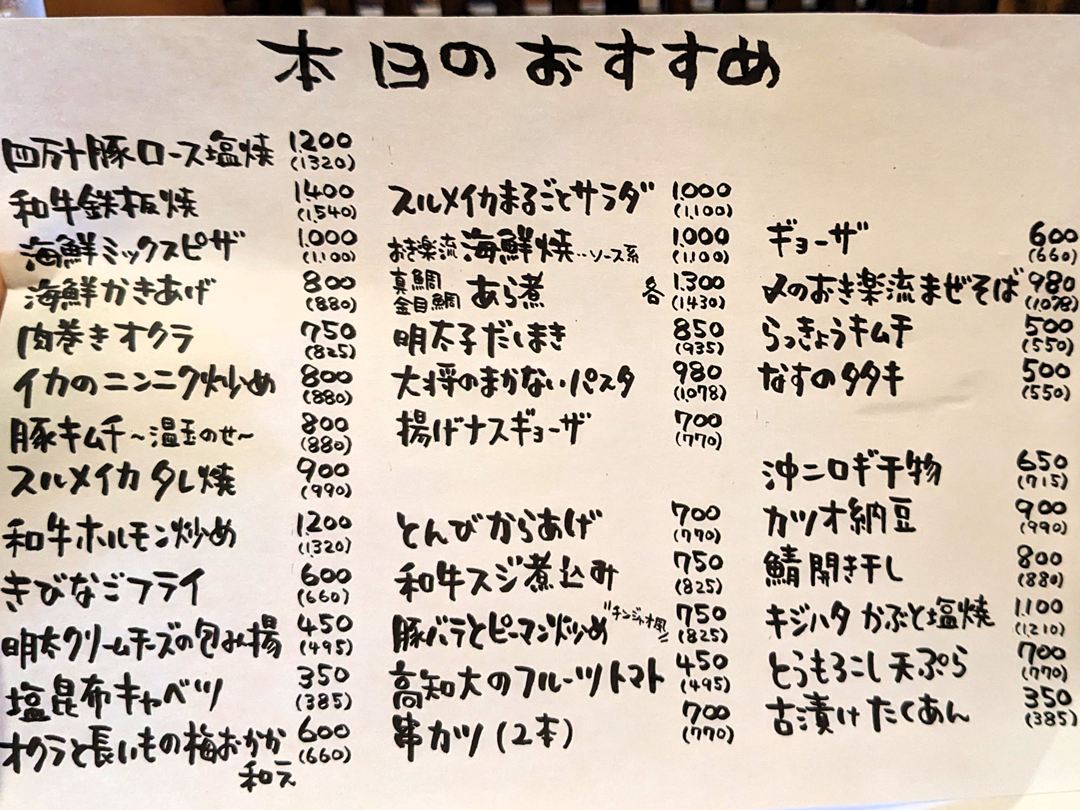 本日のおすすめ
四万十豚ロース塩焼 1.200 (1320)
和牛鉄板焼 1.400 (1.540)
海鮮ミックスピザ 1.000 (1.100)
海鮮かきあげ 800 (880)
肉巻きオクラ 750 (825)
イカのニンニク炒め 800 (880)
豚キムチ～温玉のせ～ 800 (880)
スルメイカタレ焼 900 (990)
和牛ホルモン炒め 1200 (1320)
きびなごフライ 600 (660)
明太クリームチーズの包み揚 450 (495)
塩昆布キャベツ 350 (385)
オクラと長いもの梅おかか和え 600 (660)
スルメイカまるごとサラダ 1.000 (1.100)
おき楽流海鮮焼‥ソース系 1.000 (1.100)
真鯛 金目鯛 あら煮 各 1.300 (1430)
明太子だしまき 850 (935)
大将のまかないパスタ 980 (1078)
揚げナスギョーザ 700 (770)
とんびからあげ 700 (770)
和牛スジ煮込み 750 (825)
豚バラとピーマン炒め "チンジャオ風" 750 (825)
高知大のフルーツトマト 450 (495)
串カツ(2本) 700 (770)
ギョーザ 600 (660)
〆のおき楽流まぜそば 980 (1078)
らっきょうキムチ 500 (550)
なすのタタキ 500 (550)
沖ニロギ干物 650 (715)
カツオ納豆 900 (990)
鯖開き干し 800 (880)
キジハタかぶと塩焼 1.100 (1210)
とうもろこし天ぷら 700 (770)
古漬けたくあん 350 (385)